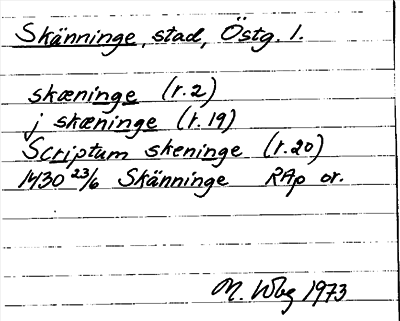 Skänninge, stad, Östg. l.
skæninge (r. 2)
j skæninge (r. 19)
Scriptum skeninge (r. 20)
1430 23/6 Skänninge RAp or.
M. Wbg 1973